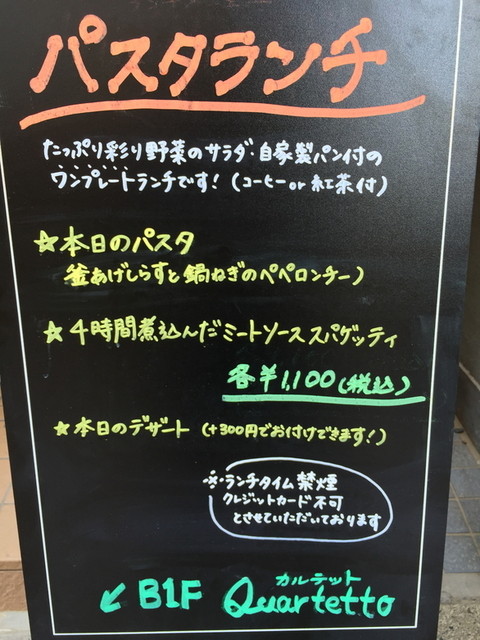 パスタランチ
たっぷり彩り野菜のサラダ・自家製パン付の
ワンプレートランチです！（コーヒー or 紅茶付）
☆本日のパスタ
釜あげしらすと鍋ねぎのペペロンチーノ
☆４時間煮込んだミートソーススパゲッティ
各￥1,100（税込）
☆本日のデザート（+300円でお付けできます！）
※ランチタイム禁煙
クレジットカード不可
とさせていただいております
カルテット
↙ B1F Quartetto